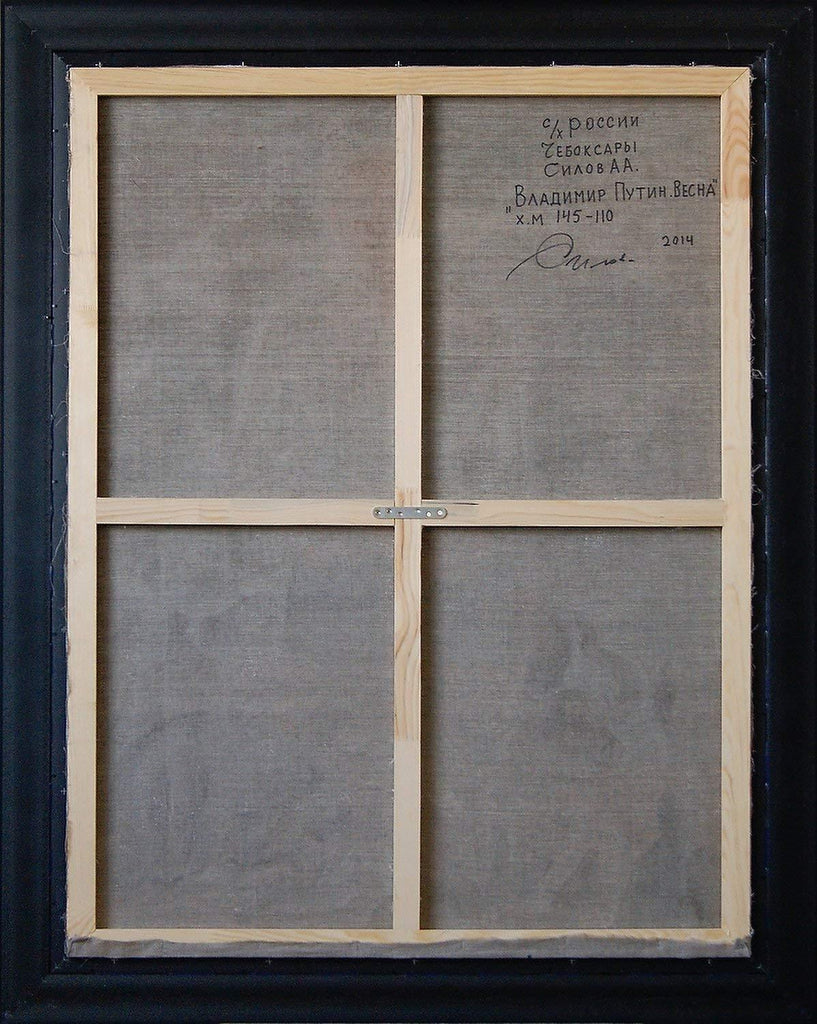 с/х РОССИИ
ЧЕБОКСАРЫ
СИЛОВ А А.
"ВЛАДИМИР ПУТИН. ВЕСНА"
х.м 145-110
2014